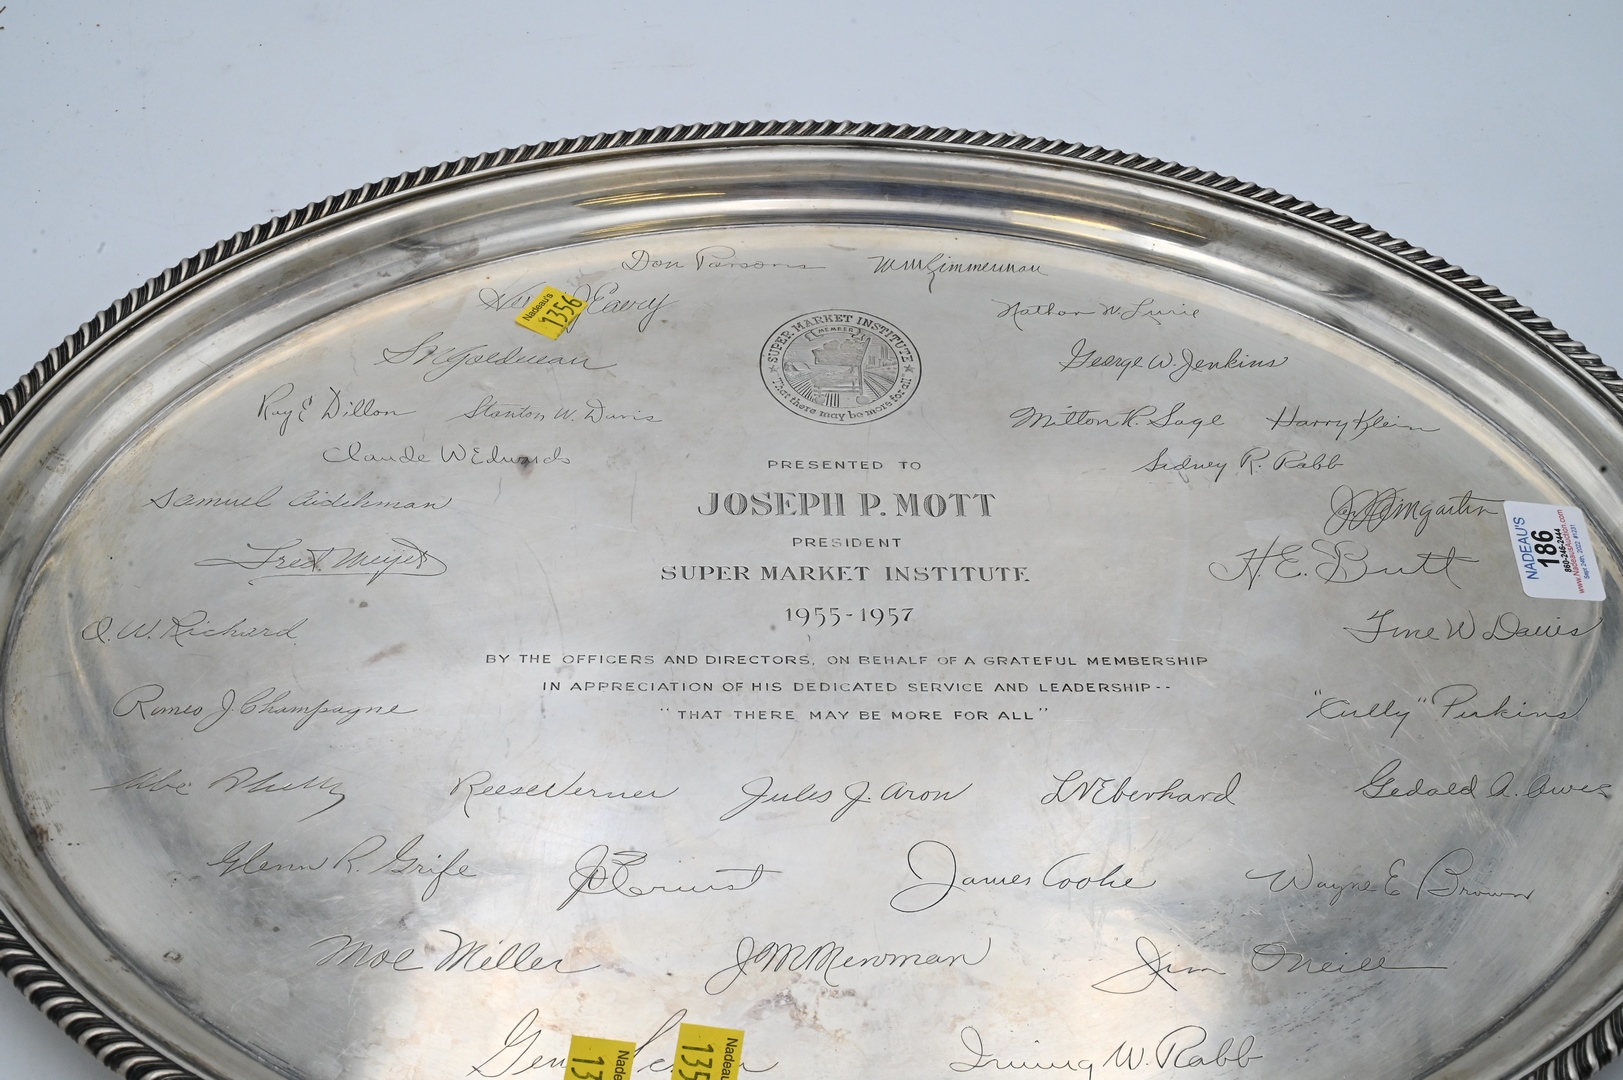 Don Parsons Wm Zimmerman
Nadeau's
1356
Nathan W. Lurie
SUPER MARKET INSTITUTE
MEMBER
"That there may be more for all"
S N Goldman
George W. Jenkins
Ray E Dillon Stanton W. Davis
Milton R. Sage Harry Klein
Claude W Edwards
PRESENTED TO
Sidney R. Rabb
Samuel
JOSEPH P. MOTT
Fred Meyer
PRESIDENT
H. E. Butt
SUPER MARKET INSTITUTE
NADEAU'S
186
860-246-2444
www.NadeausAuction.com
O. W. Richard
1955-1957
W Davis
BY THE OFFICERS AND DIRECTORS, ON BEHALF OF A GRATEFUL MEMBERSHIP
IN APPRECIATION OF HIS DEDICATED SERVICE AND LEADERSHIP--
"THAT THERE MAY BE MORE FOR ALL"
Romeo J. Champagne
"Cully" Perkins
Reese Verner Jules J. Aron L V Eberhard
Glenn R. Grife
James Cooke Wayne E Brown
Moe Miller J M Newman Jim O'Neill
Irving W. Rabb
Nadeau's
Nadeau's
135